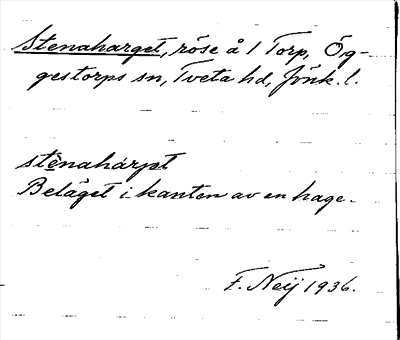 Stenaharget, röse å 1 Torp, Ög-
gestorps sn, Tveta hd, Jönk. l.
stènahárpt
Beläget i kanten av en hage.
F. Neij 1936.